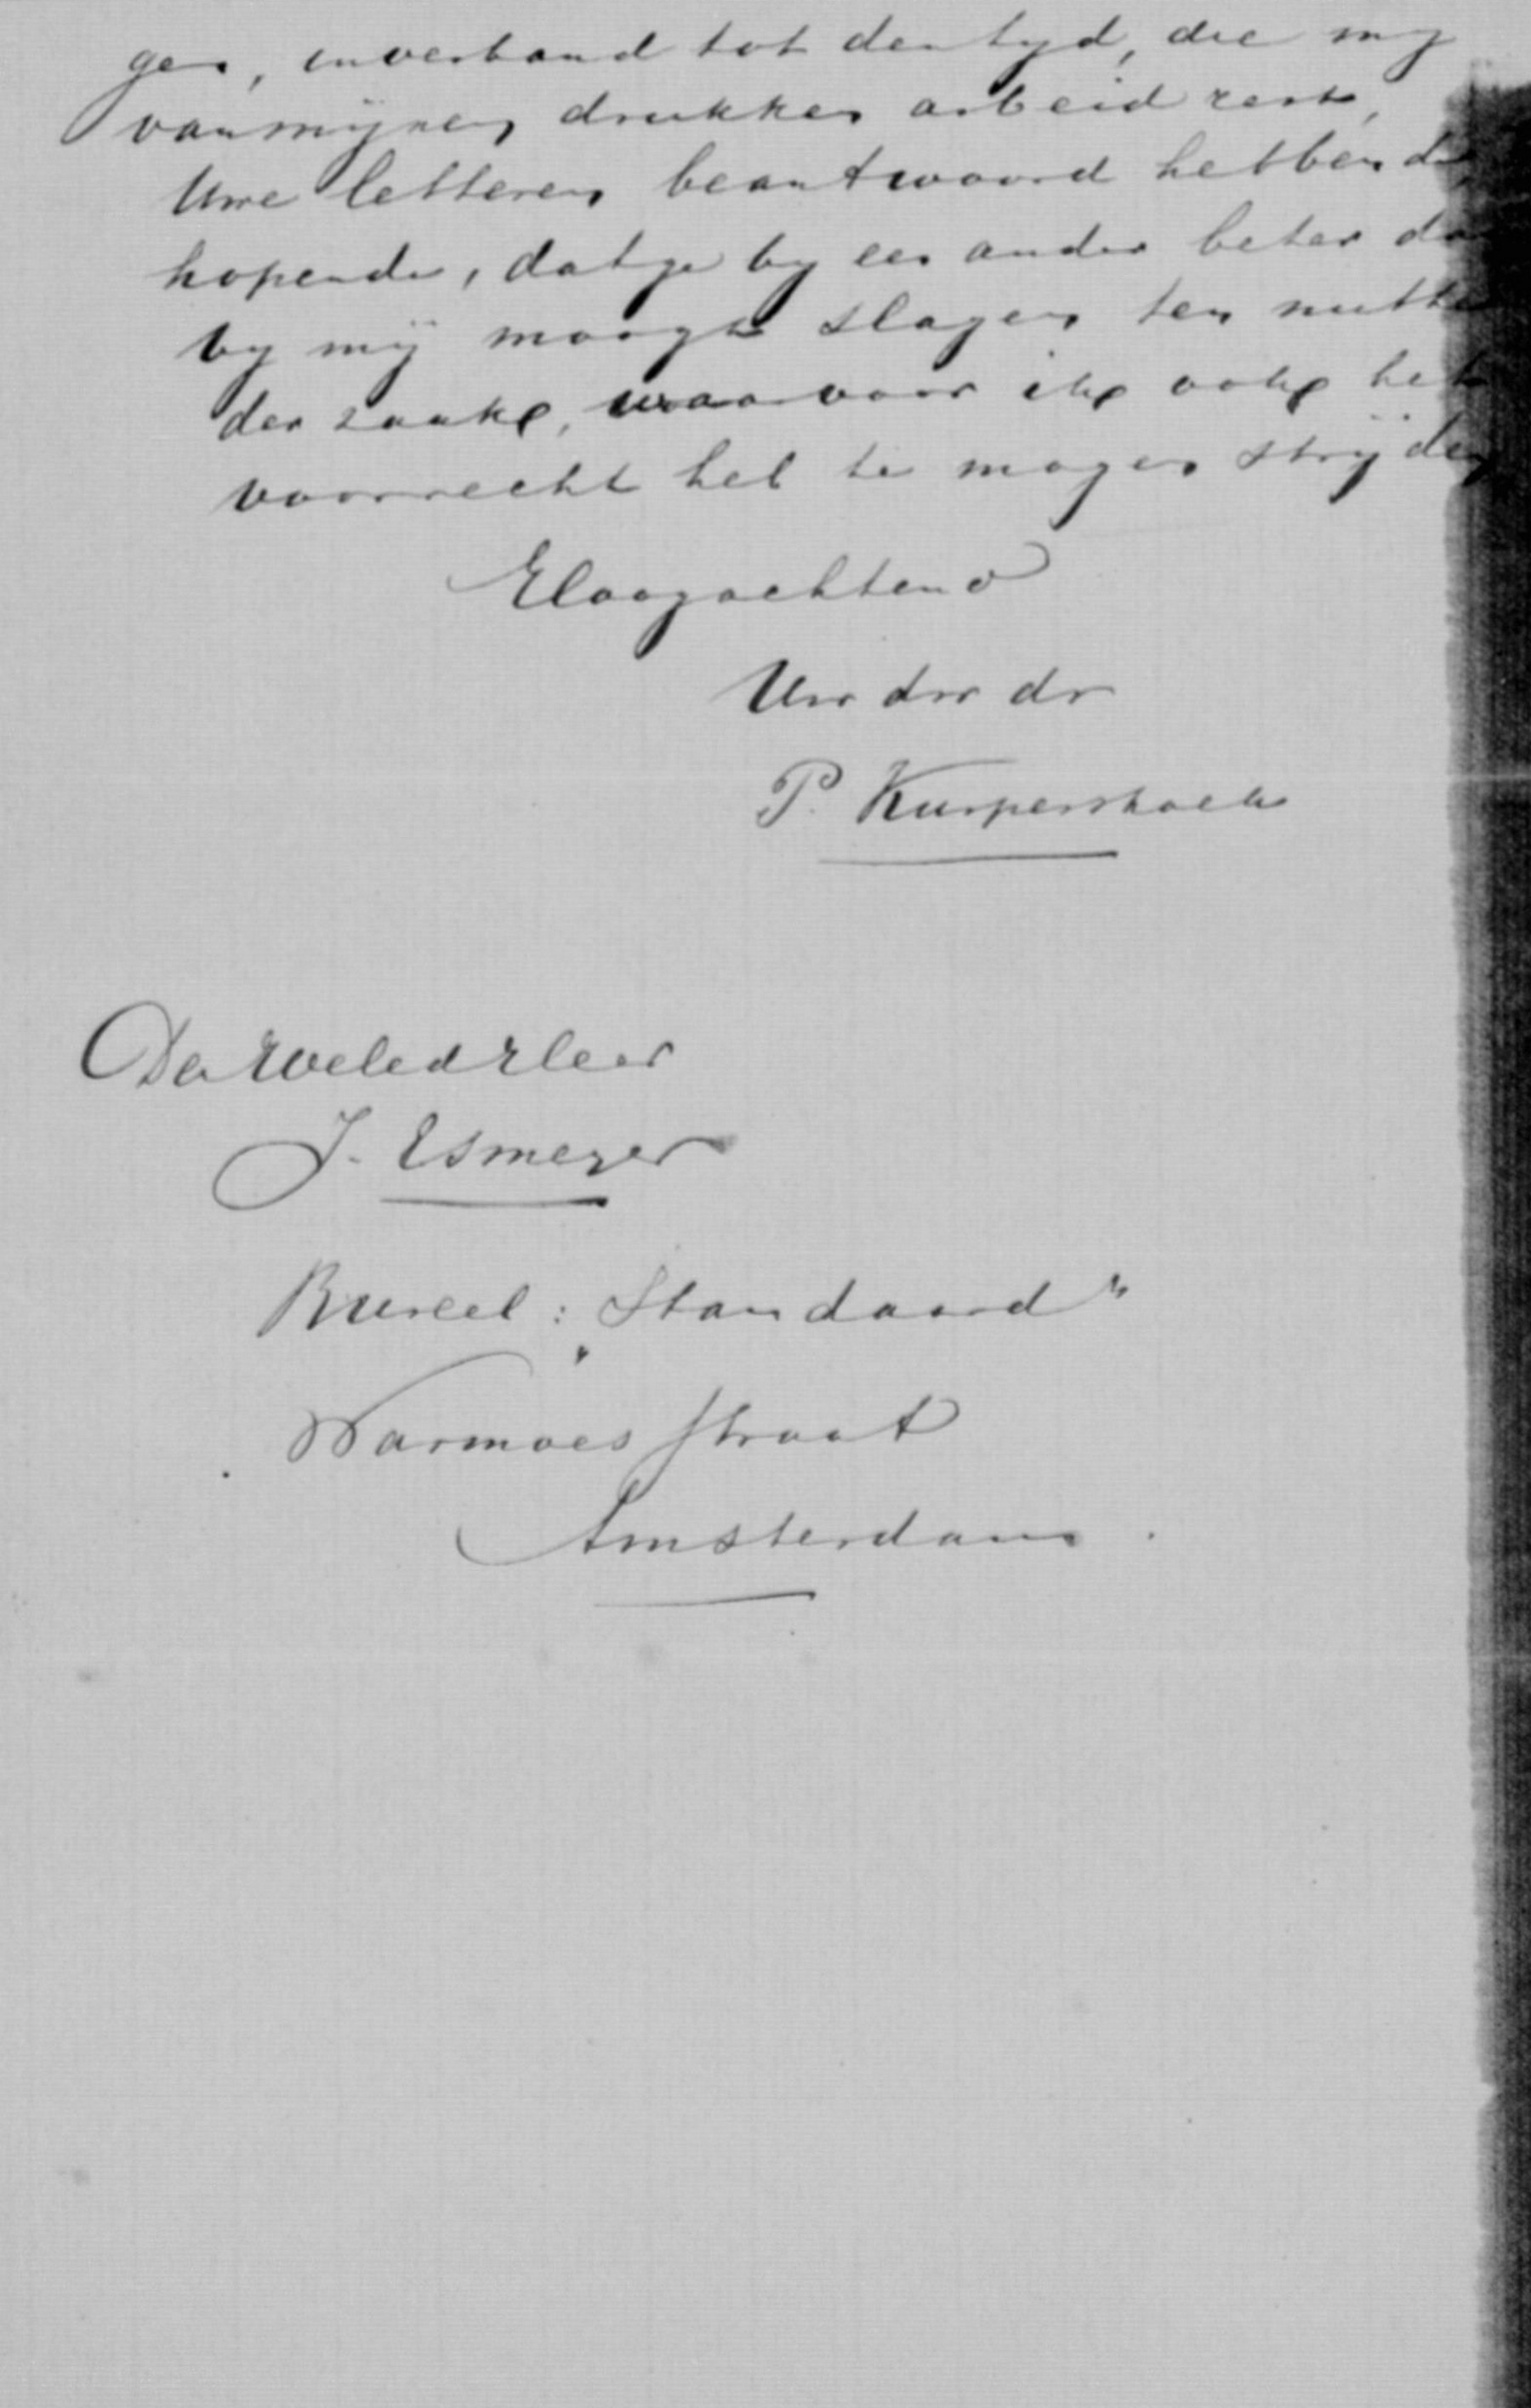 gen, in verband tot den tyd, die my
van mynen drukken arbeid rest,
Uwe letteren beantwoord hebbende
hopende, dat ge by een ander beter dan
by mij moogt slagen ten nutte
der zaake, waarvoor ik ook het
voorrecht heb te mogen strijden
Hoogachtend
Uw dw dr
P. Kuypershoek
Den WelEd Heer
J. Esmeyer
Bureel: „Standaard"
Warmoesstraat
Amsterdam.